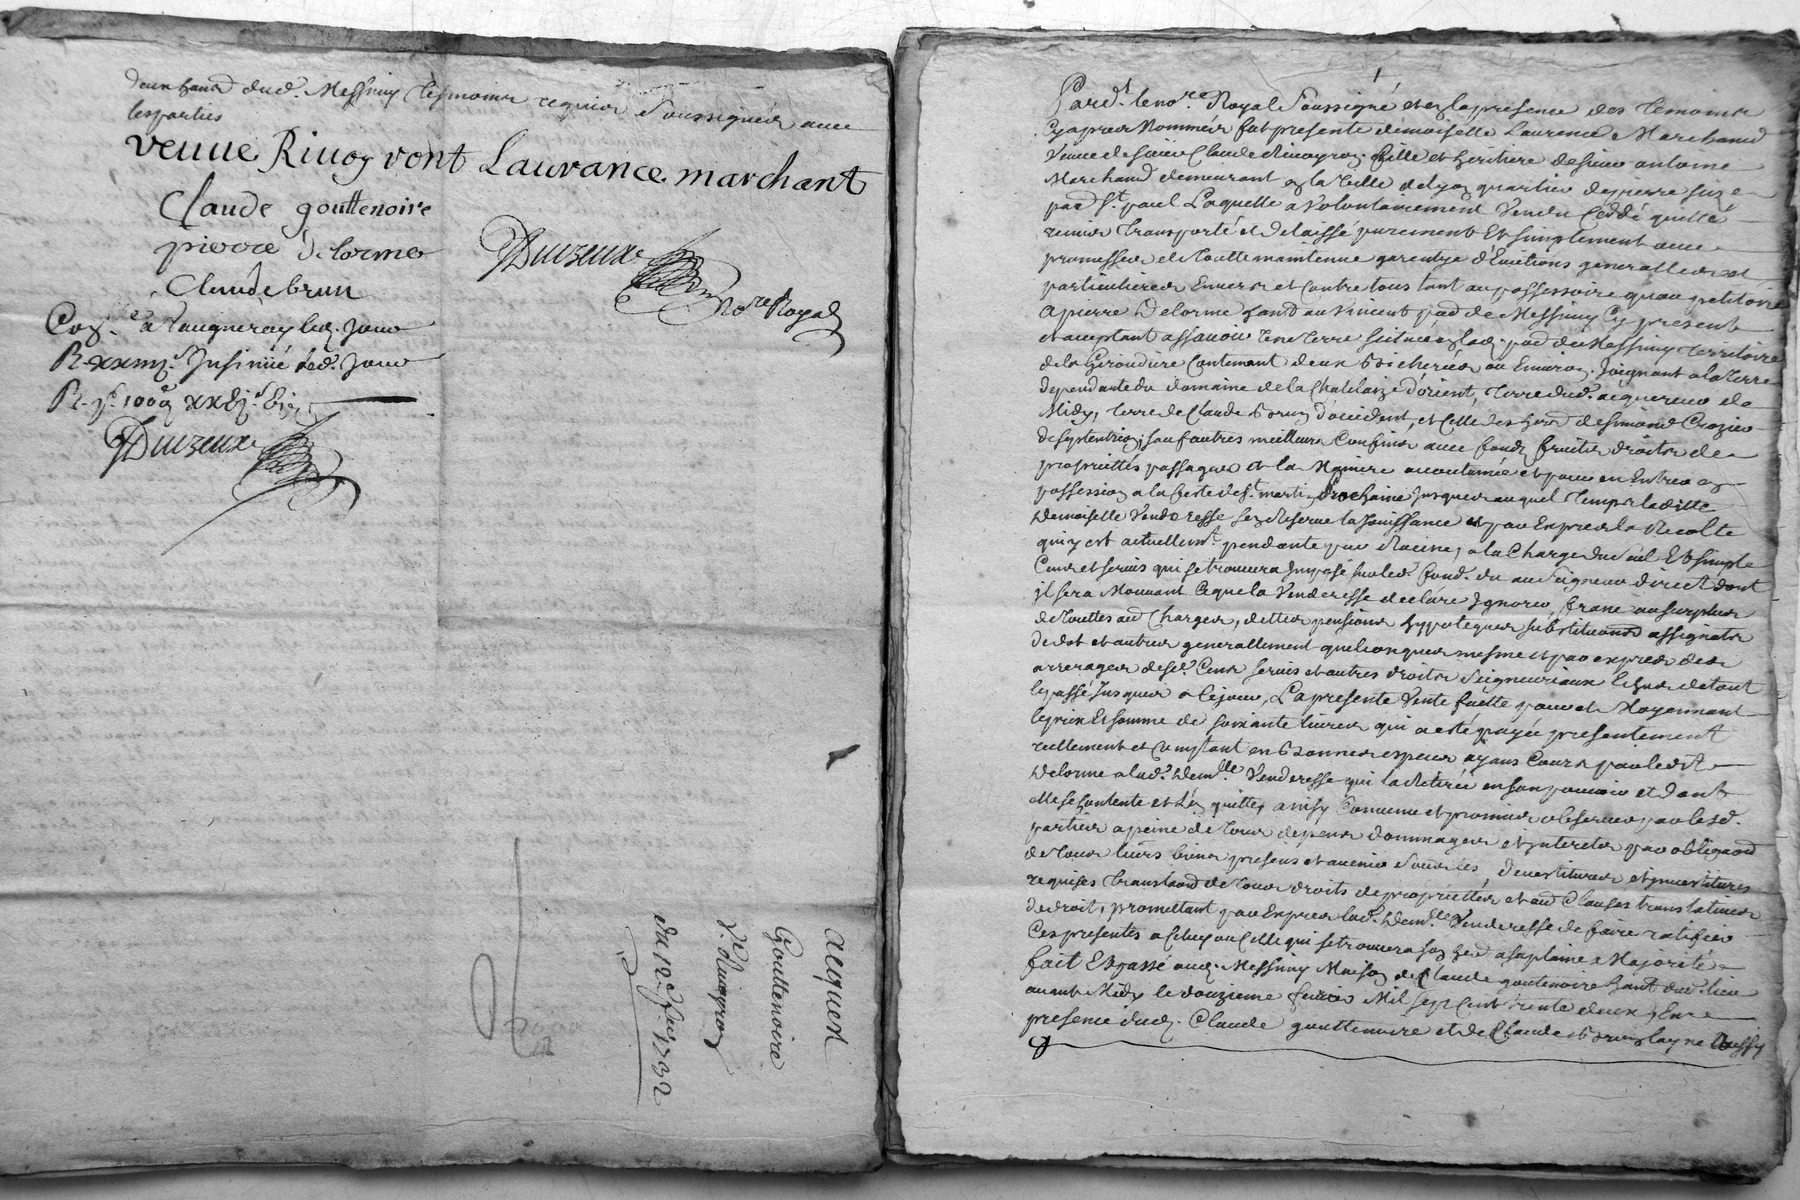 deux habitt dud. Messimy tesmoins requis Soussignés avec
les parties
veuue Riuoyront Lauvrance marchant
Claude gouttenoire
pierre de lorme
Claude brun
DuiZeux
No.re Royal
Con.lé a Vaugneray led. Jour
R. xxiiij.s Insinüé led. Jour
DuiZeux
acquest
Gouttenoire
V.e Riuoyron
du 12.e feu. 1732
1
Pard.t le no.re Royal Soussigné et en la presence des temoins
Cy apres Nommés fut presente demoiselle Laurence Marchand
Veuue de sieur Claude Riuoyron fille et heritiere de sieur antoine
Marchand demeurant en la Ville de Lyon quartier de pierre Size
par.s S.t paul Laquelle a Volontairement Vendu Ceddé quitté
remis transporté et delaissé purement Et simplement auec
promesses de Toutte maintenue garentye d'Euictions generalles et
particulieres Enuers et Contre tous tant au possessoire qu'au petitoire
a pierre Delorme habitt au Vincent p.sse de Messimy Cy present
et acceptant assauoir Une Terre scituée en lad. p.sse de Messimy Territoire
de la Girondiere Contenant deux Bicherées ou Enuiron, Joignant a la Terre
dependante du domaine de la Chatelaize d'orient, Terre dud. acquereur de
Midy, terre de Claude Brun d'occident, et Celle des her.s de simond Crozier
de septentrion, sauf autres meilleurs Confins auec fonds fruits droits de
proprietté passages et la Maniere accoutumée et pour en Entrer en
possession a la feste de S.t martin prochaine Jusques auquel Temps laditte
Demoiselle Venderesse sen Reserue la Jouissance et par Expres la Recolte
qui y est actuellem.t pendante par Racine, a la Charge du seul Et simple
Cens et seruis qui se trouuera Imposé sur led. fond. du au Seigneur direct dont
il sera Mouuant Ce que la Venderesse declare Ignorer, franc au surplus
de touttes au.s Charges, dettes pensions hypoteques substituons assignats
de dot et autres generallement quelconques mesme et par expres des
arrerages desd. Cens seruis et autres droits Seigneuriaux Echus de tout
le passé Jusques a Ce jour, La presente Vente faitte pour et Moyennant
le prix Et somme de soixante liures qui a esté payée presentement
reellement et Comptant en Bonnes especes ayans Cours par ledit
Delorme a lad. Dem.lle Venderesse qui la Retirée en son pouuoir et dont
elle se Contente et L'en quitte, ainsy Conuenu et promis obseruer par lesd.
parties a peine de tous depens dommages et interets par obliga.on
de tous leurs biens presens et auenir Soumises, deuestitures et inuestitures
requises translaon de tous droits de propriettés et au.s Clauses translatiues
de droit, promettant par Expres lad. Dem.lle Venderesse de faire ratifier
Ces presentes a Celuy ou Celle qui se trouuera son her.s a sa plaine Majorité
fait Et passé aud. Messimy Maison de Claude goutenoire habitt dud. lieu
auant Midy le douzieme feurier Mil sept Cent trente deux En
presence dud. Claude gouttenoire et de Claude Brun layne Aussy